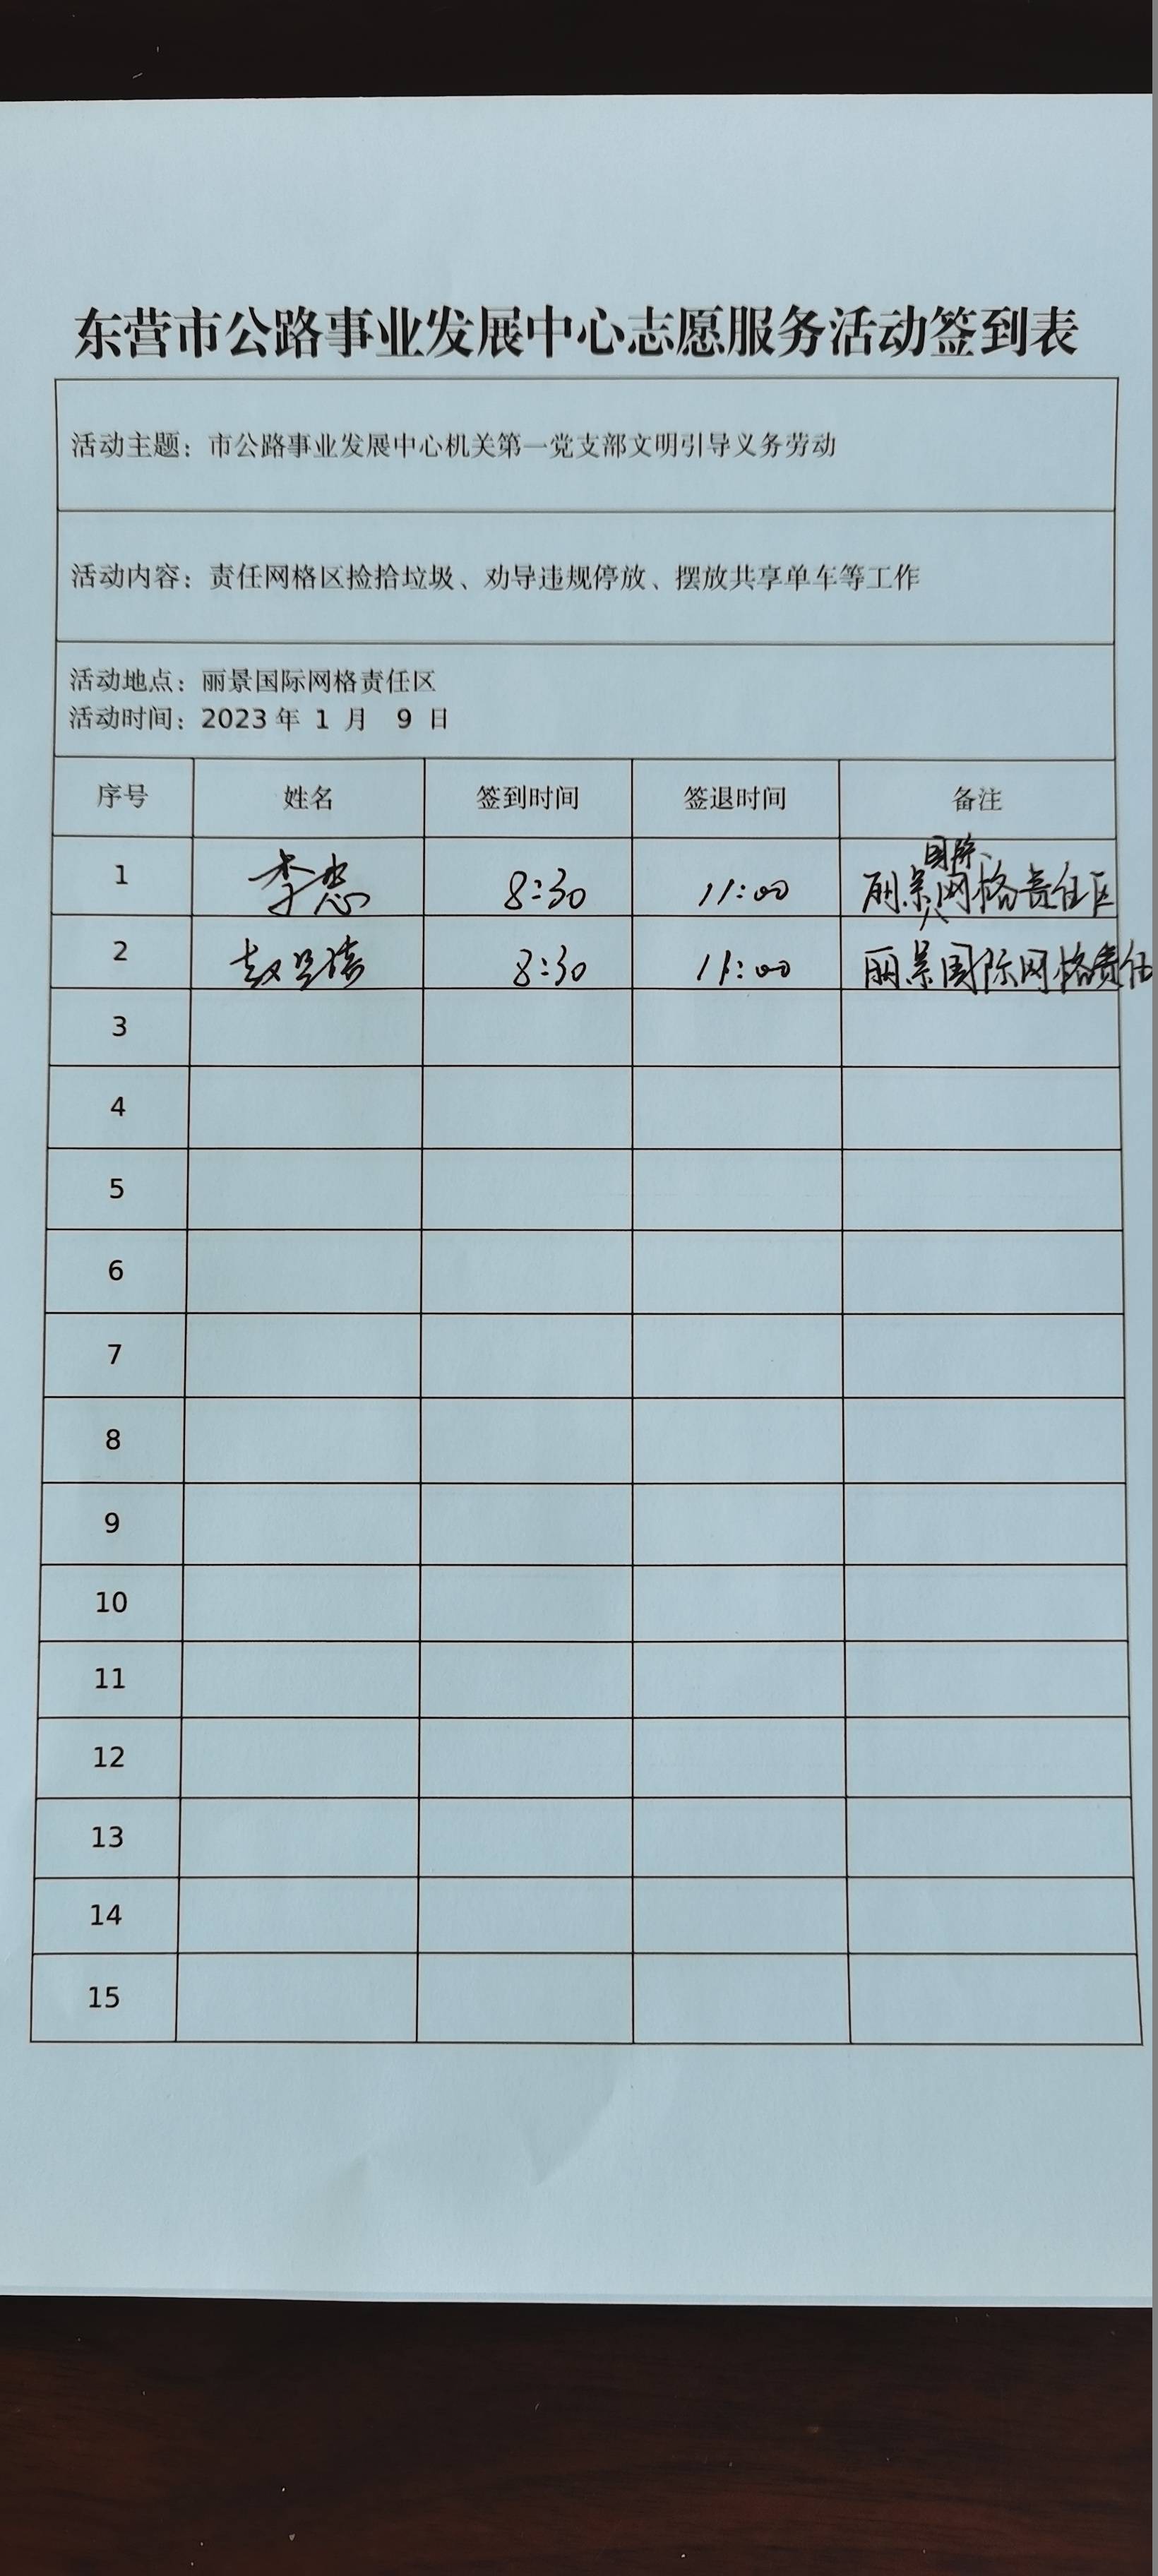 东营市公路事业发展中心志愿服务活动签到表
活动主题：市公路事业发展中心机关第一党支部文明引导义务劳动
活动内容：责任网格区捡拾垃圾、劝导违规停放、摆放共享单车等工作
活动地点：丽景国际网格责任区
活动时间：2023年 1 月 9 日
序号 姓名 签到时间 签退时间 备注
1 李 8:30 11:00 丽景国际网格责任区
2 赵 8:30 11:00 丽景国际网格责任
3
4
5
6
7
8
9
10
11
12
13
14
15